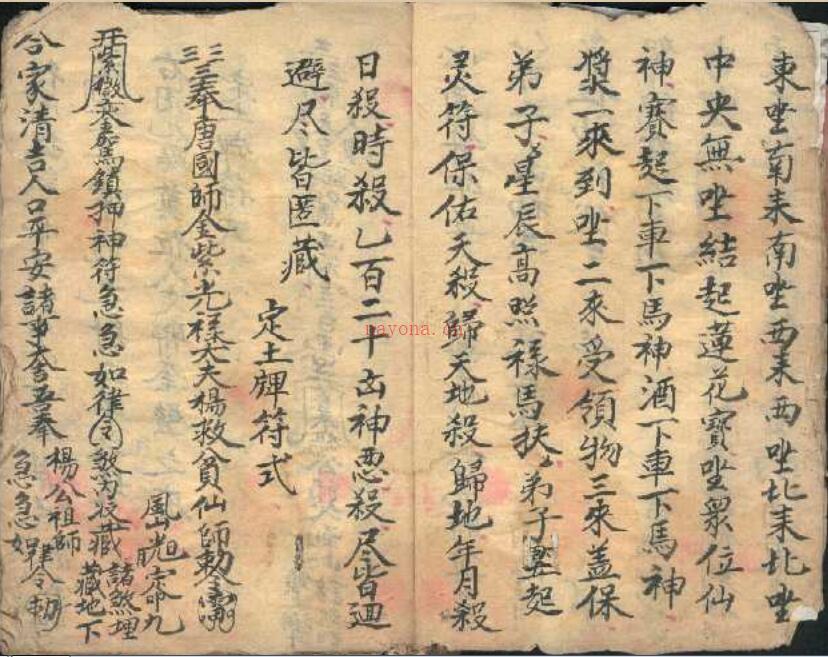 東坐南来南坐西来西坐北来北坐
中央無坐結起蓮花寶坐眾位仙
神賽起下車下馬神酒下車下馬神
漿一來到坐二來受領物三來蓋保
弟子星辰高照祿馬扶弟子起
灵符保佑天殺歸天地殺歸地年月殺
日殺時殺乙百二十凶神恶殺尽皆廻
避尽皆匿藏
定土牌符式
三三三奉唐國師金紫光祿大夫楊救貧仙師勅令
紫微鑾駕鎖押神符急急如律令
諸煞埋
藏地下
合家清吉人口平安諸事大吉奉
楊公祖師
急急如律令勅
nayona.cn